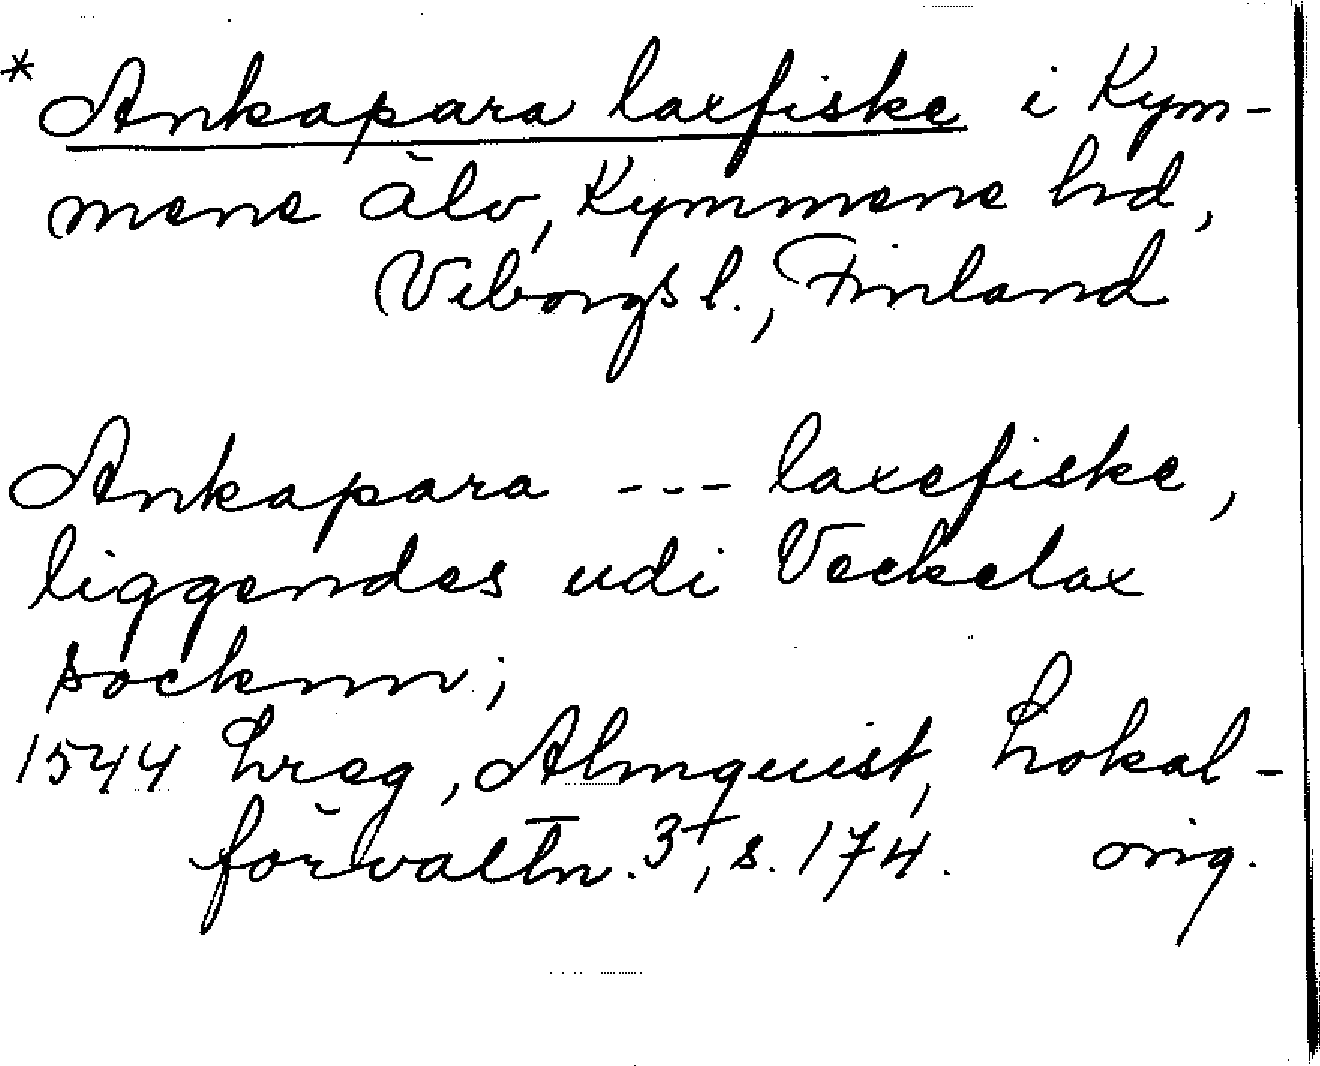 * Ankapara laxfiske i Kym-
mene älv, Kymmene hd,
Viborgs l., Finland
Ankapara --- laxefiske,
liggendes udi Veckelax
socknn;
1544 hreg, Almquist, Lokal-
förvaltn. 3+, s. 174. orig.